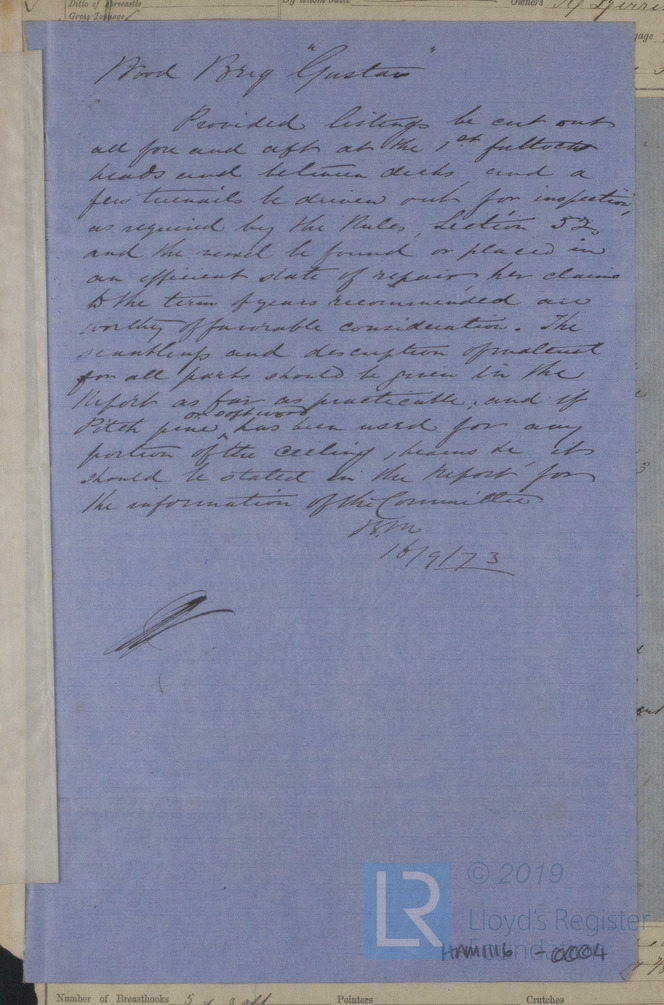 Ditto of Forecastle
Gross Tonnage
Owners
Wood Brig "Gustav"
Provided listings be cut out
all fore and aft at the 1st futtocks
heads and between decks, and a
few treenails be driven out for inspection,
as required by the Rules, Section 52,
and the vessel be found or placed in
an efficient state of repair her claims
to the term of years recommended are
worthy of favorable consideration. The
scantlings and description of material
for all parts should be given in the
Report as far as practicable; and if
Pitch pine ^ or soft wood has been used for any
portion of the ceiling, beams &c, it
should be stated in the Report for
the information of the Committee
16/9/73
© 2019
LR
Lloyd's Register
Foundation
HAM1116 -0004
Number of Breasthooks 5
Pointers
Crutches